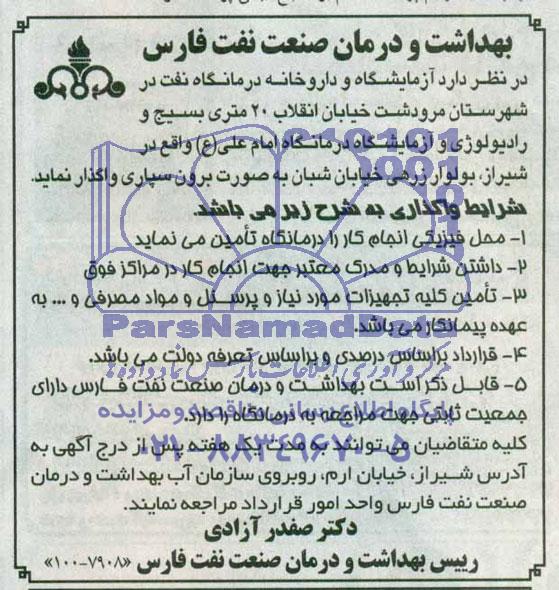 بهداشت و درمان صنعت نفت فارس
در نظر دارد آزمایشگاه و داروخانه درمانگاه نفت در
شهرستان مرودشت خیابان انقلاب ۲۰ متری بسیج و
رادیولوژی و آزمایشگاه درمانگاه امام علی(ع) واقع در
شیراز، بولوار زرهی خیابان شبان به صورت برون سپاری واگذار نماید.
شرایط واگذاری به شرح زیر می باشد.
۱- محل فیزیکی انجام کار را درمانگاه تأمین می نماید
۲- داشتن شرایط و مدرک معتبر جهت انجام کار در مراکز فوق
۳- تأمین کلیه تجهیزات مورد نیاز و پرسنل و مواد مصرفی و ... به
عهده پیمانکار می باشد.
ParsNamadData
۴- قرارداد براساس درصدی و براساس تعرفه دولت می باشد.
مرکز فرآوری اطلاعات پارس نماد داده ها
۵- قابل ذکر است بهداشت و درمان صنعت نفت فارس دارای
جمعیت ثابتی جهت مراجعه به درمانگاه را دارد.
پایگاه اطلاع رسانی مناقصه و مزایده
کلیه متقاضیان می توانند به مدت یک هفته پس از درج آگهی به
۰۲۱-۸۸۳۴۹۶۷۰-۵
آدرس شیراز، خیابان ارم، روبروی سازمان آب بهداشت و درمان
صنعت نفت فارس واحد امور قرارداد مراجعه نمایند.
دکتر صفدر آزادی
رییس بهداشت و درمان صنعت نفت فارس «۷۹۰۸-۱۰۰»